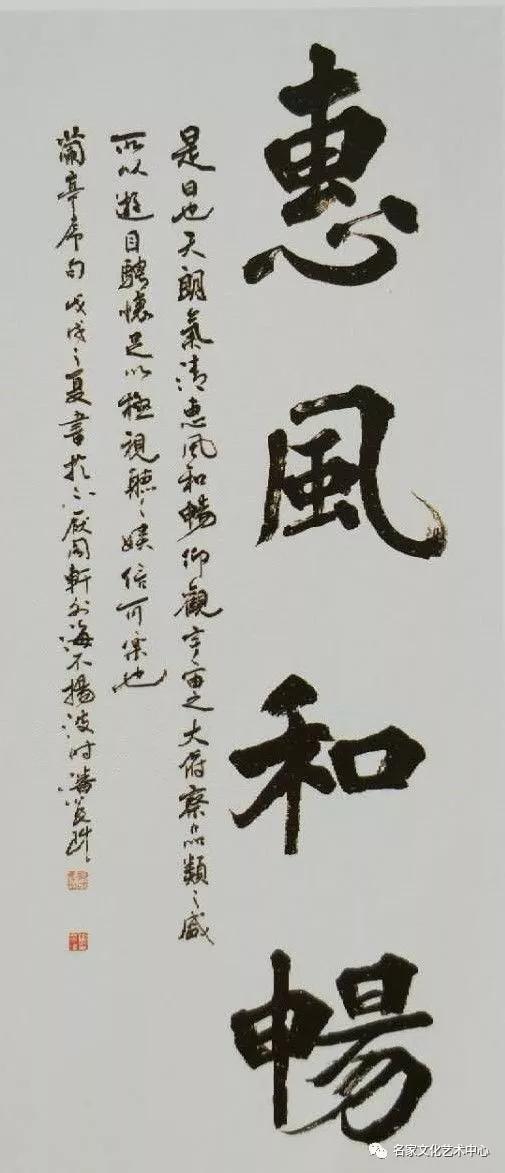 惠風和暢
是日也天朗氣清惠風和暢仰觀宇宙之大俯察品類之盛
所以遊目騁懷足以極視聽之娱信可樂也
蘭亭序句戊戌之夏書於 軒外海不揚波时潘
名家文化艺术中心